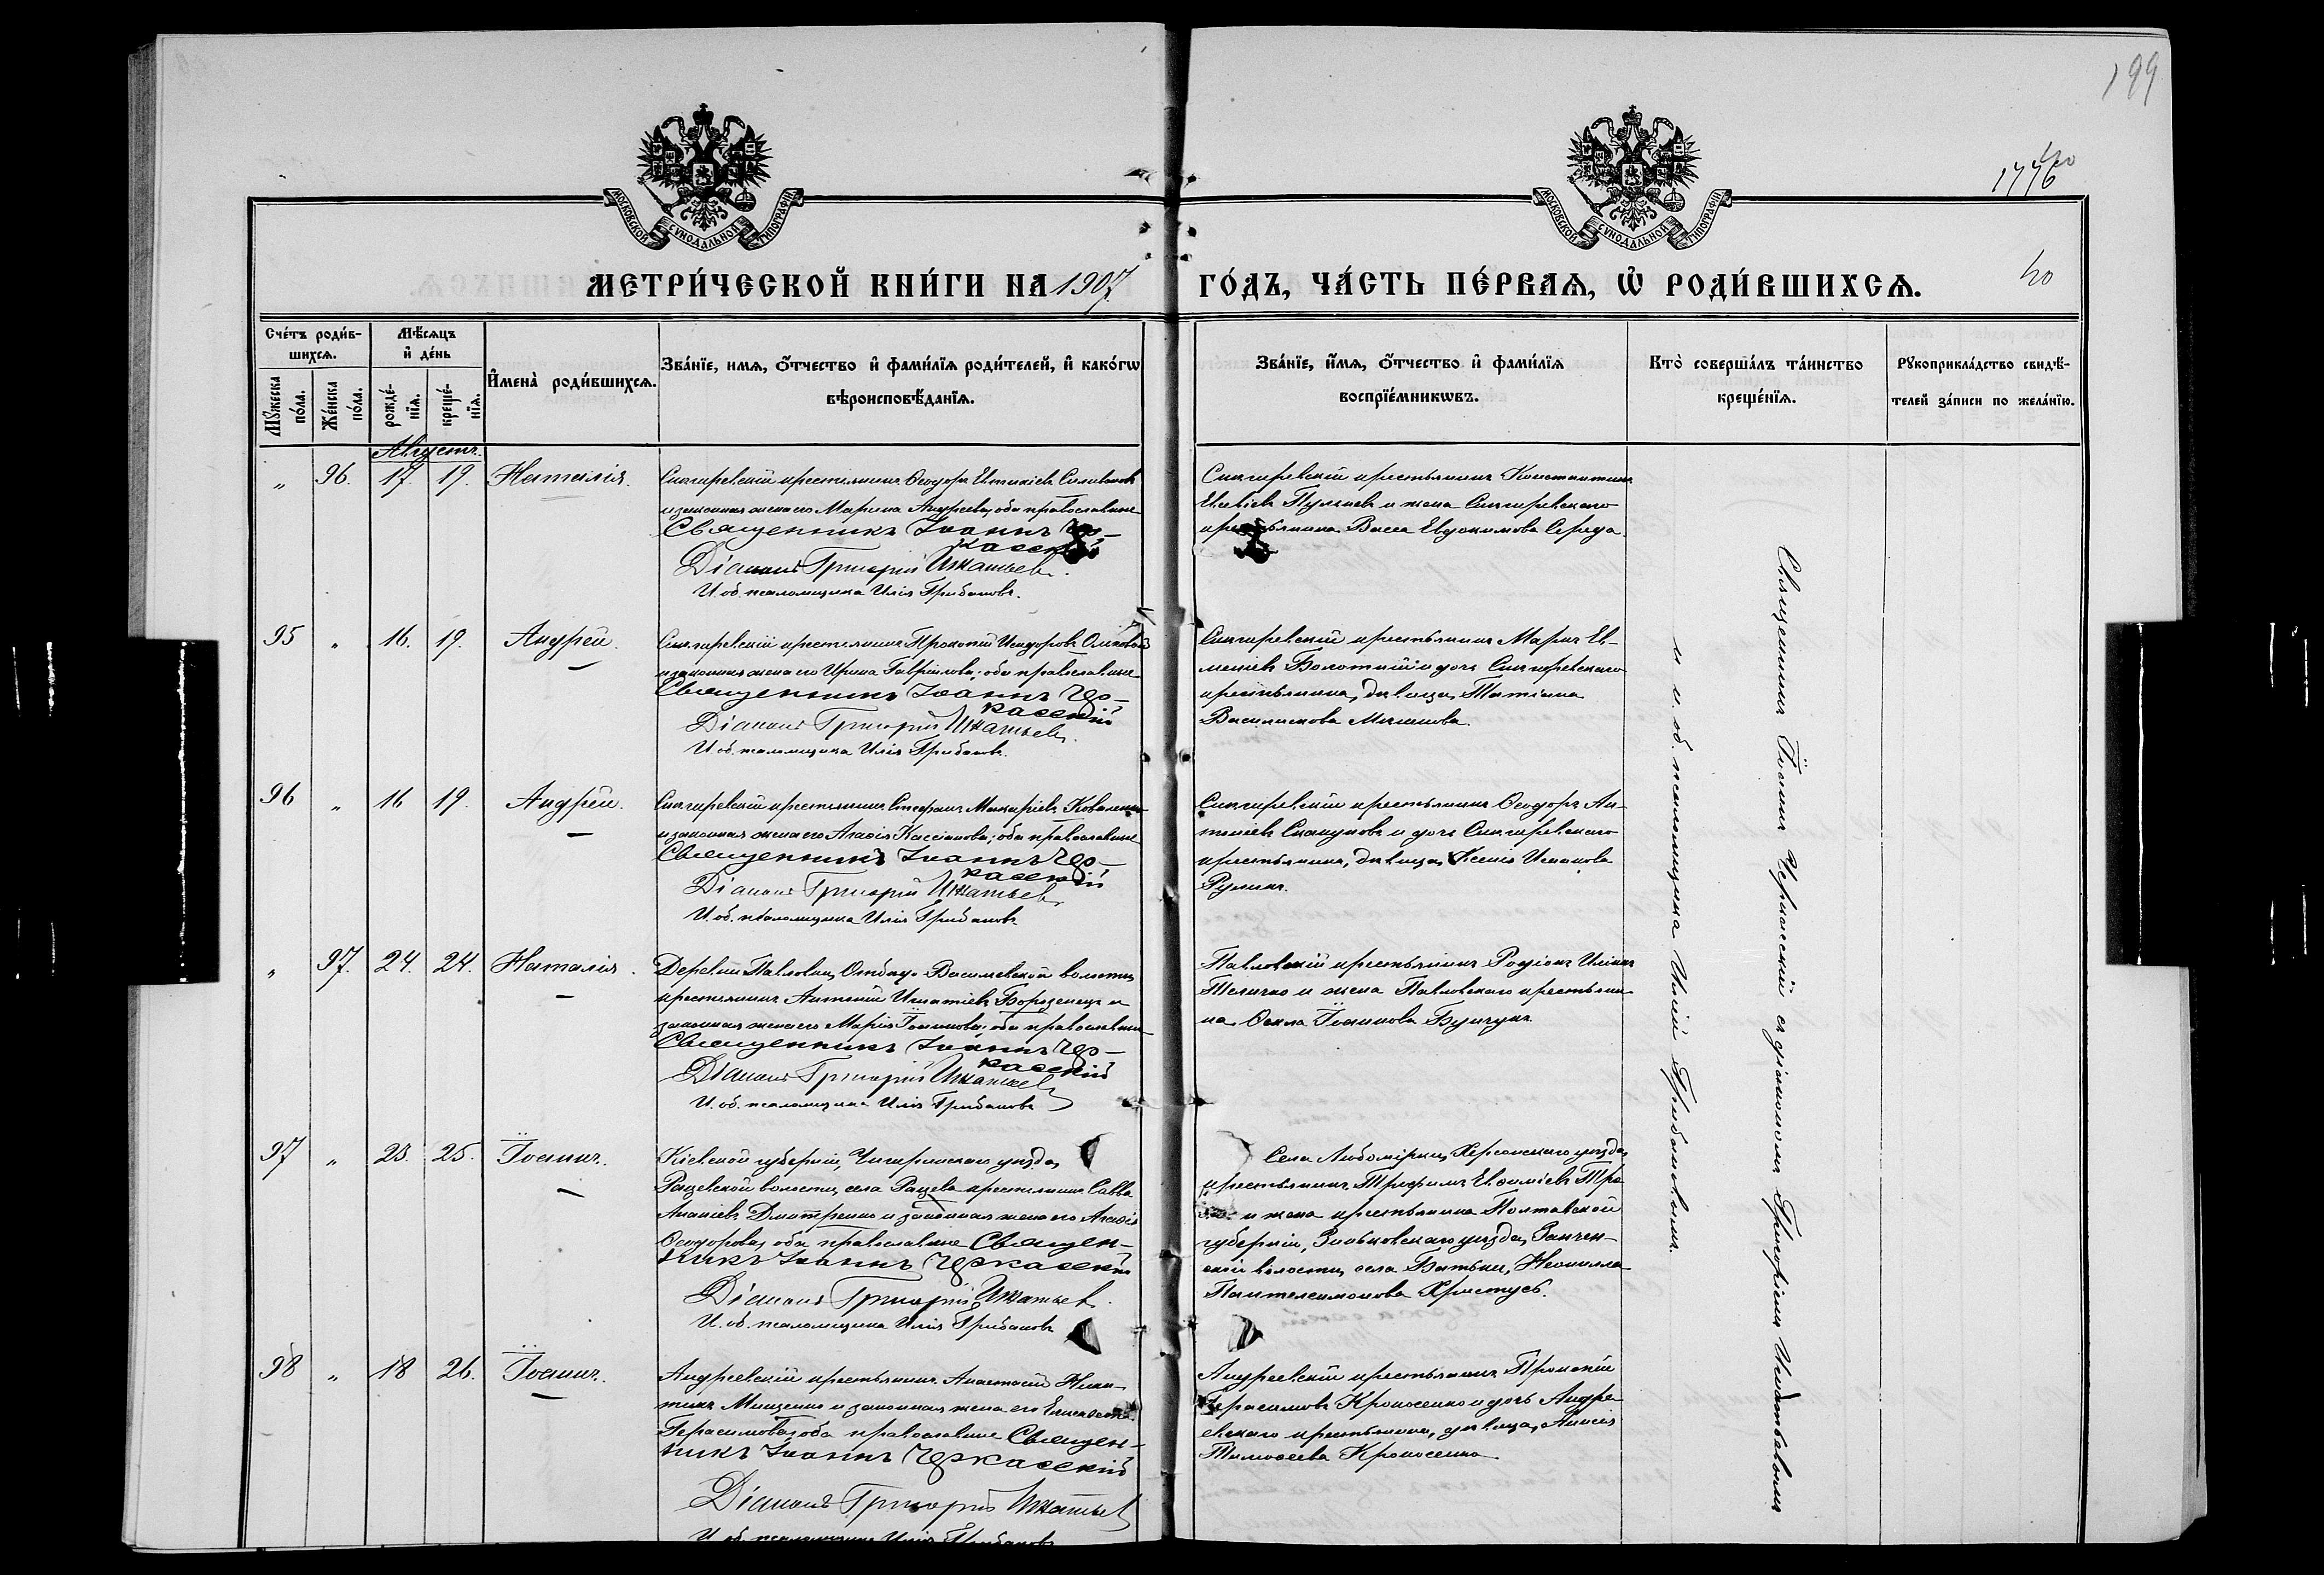 199
1776
40
МОСКОВСКОЙ СѴНОДАЛЬНОЙ ТИПОГРАФІИ
МОСКОВСКОЙ СѴНОДАЛЬНОЙ ТИПОГРАФІИ
МЕТРИ́ЧЕСКОЙ КНИ́ГИ НА 1907 ГО́ДЪ, ЧА́СТЬ ПЕ́РВАѦ, Ѡ҆ РОДИ́ВШИХСѦ.
40
Сче́тъ роди́в-
шихсѧ.
Мꙋ́жеска по́ла.
Же́нска по́ла.
Мѣ́сѧцъ
и҆ де́нь
рожде́-
нїѧ.
креще́-
нїѧ.
И҆мена̀ роди́вшихсѧ.
Зва́нїе, имѧ, ѻ҆́тчество и҆ фами́лїѧ роди́телей, и҆ како́гѡ
вѣроисповѣ́данїѧ.
Зва́нїе, и҆́мѧ, ѻ҆́тчество и҆ фами́лїѧ
воспрїе́мникѡвъ.
Кто̀ соверша́лъ та́инство
креще́нїѧ.
Рꙋкоприкла́дство свидѣ́-
телей за́писи по жела́нїю.
Августъ.
" 96. 17. 19. Наталія.
Снигиревскій крестьянинъ Ѳеодоръ
и законная жена его Марина Андреева, оба православные
Священникъ Іоаннъ Чер-
касскій
Діаконъ Григорій Игнатьев.
И. об. псаломщика Илія Грибановъ.
Снигиревскій крестьянинъ Константинъ
и жена Снигиревскаго
крестьянина Васса Евдокимова Середа.
95 " 16. 19. Андрей.
Снигиревскій крестьянинъ Прокопій Исидоровъ
и законная жена его Ирина Гаврилова, оба православные
Священникъ Іоаннъ Чер-
касскій
Діаконъ Григорій Игнатьев.
И. об. псаломщика Илія Грибановъ.
Снигиревскій крестьянинъ Ев-
меніевъ Болотный и дочь Снигиревскаго
крестьянина, дѣвица, Татіана
Василискова
96 " 16 19. Андрей.
Снигиревскій крестьянинъ Стефанъ Макаріевъ Коваленко
и законная жена его Агаѳія Кассіанова, оба православные
Священникъ Іоаннъ Чер-
касскій
Діаконъ Григорій Игнатьев
И. об. псаломщика Илія Грибановъ
Снигиревскій крестьянинъ Ѳеодоръ Ан-
тоніевъ Скакуновъ и дочь Снигиревскаго
крестьянина, дѣвица, Ксенія
" 97. 24. 24. Наталія.
Деревни Павловки, Отбѣдо-Васильевской волости
крестьянинъ Антоній Игнатіевъ Борозенецъ и
законная жена его Марія Іоаннова, оба православные
Священникъ Іоаннъ Чер-
касскій
Діаконъ Григорій Игнатьев
И. об. псаломщика Илія Грибановъ
Павловскій крестьянинъ Родіонъ Иліинъ
Теличко и жена Павловскаго крестьяни-
на Ѳекла Іоаннова Бунчукъ
97 " 23. 25. Іоаннъ.
Кіевской губерніи, Чигиринскаго уѣзда,
Рацевской волости, села Рацева крестьянинъ Савва
Ананіевъ Дмитренко и законная жена его Агаѳія
Ѳеодорова, оба православные Священ-
никъ Іоаннъ Черкасскій
Діаконъ Григорій Игнатьев.
И. об. псаломщика Илія Грибановъ
Села Любомірки, Херсонскаго уѣзда,
крестьянинъ Трофимъ Евѳиміевъ
и жена крестьянина Полтавской
губерніи, Зѣньковскаго уѣзда,
волости, села Батьки, Неонилла
Пантелеимонова Христусъ.
98 " 18 26. Іоаннъ.
Андреевскій крестьянинъ Анастасій Ники-
тинъ Мищенко и законная жена его Елисавета
Герасимова, оба православные Священ-
никъ Іоаннъ Черкасскій
Діаконъ Григорій Игнатьев
И. об. псаломщика Илія Грибановъ
Андреевскій крестьянинъ Прокопій
Герасимовъ и дочь Андре-
евскаго крестьянина, дѣвица, Анисія
Тимоѳеева
Священникъ Іоаннъ Черкасскій съ діакономъ Григоріемъ Игнатьевымъ
и и. об. псаломщика Иліей Грибановымъ.